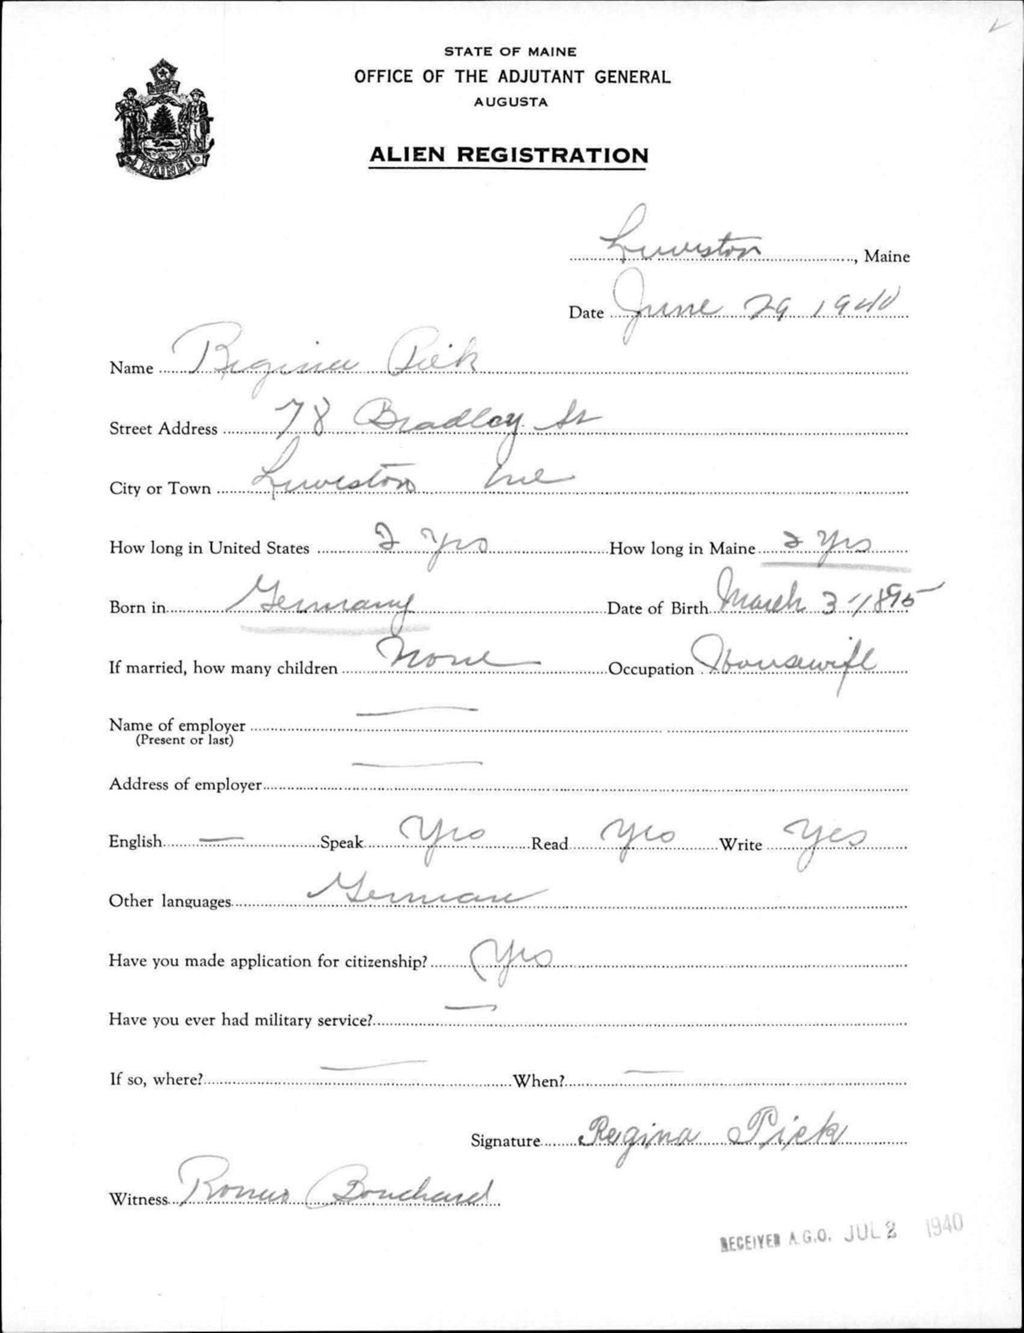 STATE OF MAINE
OFFICE OF THE ADJUTANT GENERAL
AUGUSTA
MAINE
ALIEN REGISTRATION
Lewiston, Maine
Date June 29 1940
Name Regina Pick
Street Address 78 Bradley St
City or Town Lewiston Me
How long in United States 2 Yrs How long in Maine 2 Yrs
Born in Germany Date of Birth March 3 - 1895
If married, how many children None Occupation Housewife
Name of employer —
(Present or last)
Address of employer —
English — Speak Yes Read Yes Write Yes
Other languages German
Have you made application for citizenship? Yes
Have you ever had military service? —
If so, where? — When? —
Signature Regina Pick
Witness Bouchard
RECEIVED A.G.O. JUL 2 1940